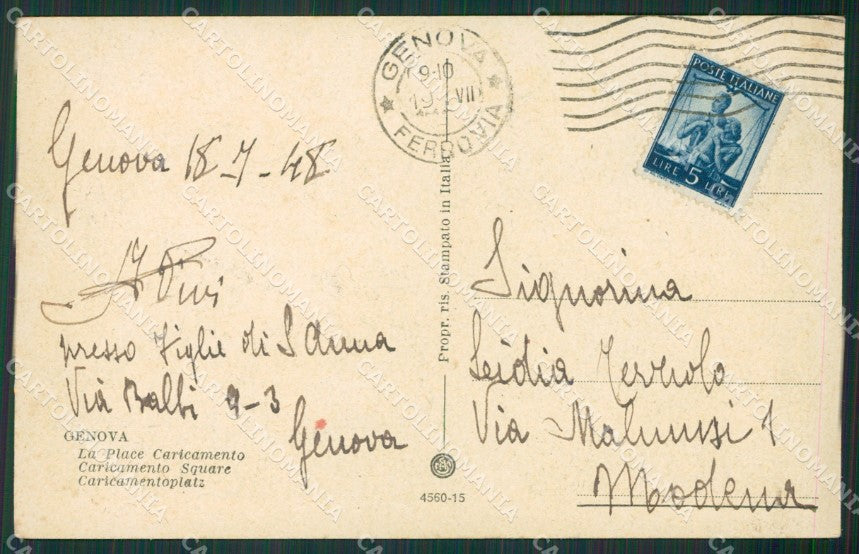 GENOVA
9-10
19 VII
FERROVIA
POSTE ITALIANE
LIRE 5 LIRE
Genova 18-7-48
presso Figlie di S Anna
Via Balbi 9-3
Genova
GENOVA
La Place Caricamento
Caricamento Square
Caricamentoplatz
Propr. ris. Stampato in Italia
4560-15
Signorina
Via Malmusi 1
Modena
CARTOLINOMANIA